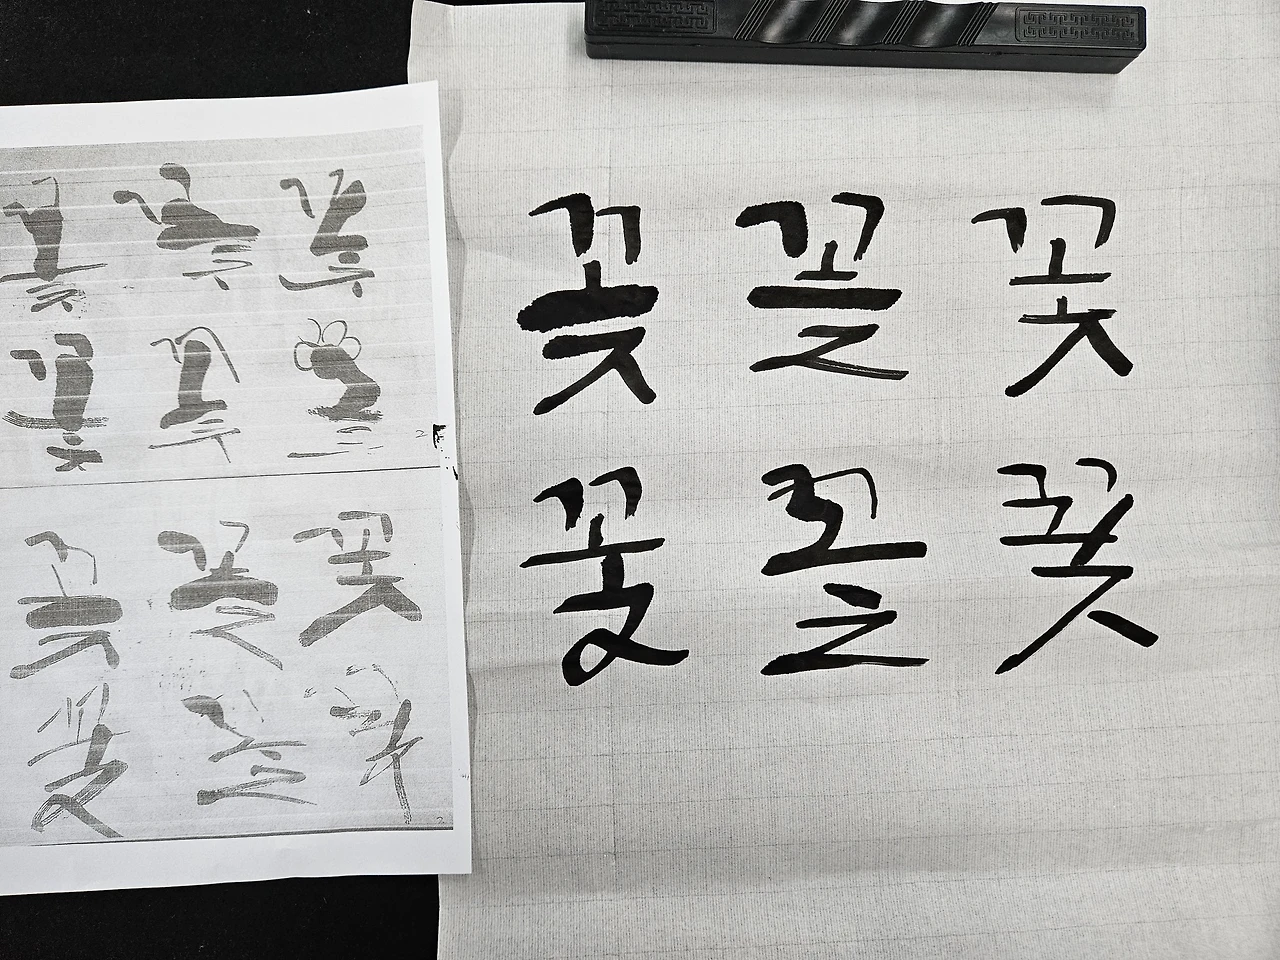 꽃 꽃 꽃
꽃 꽃 꽃
꽃 꽃 꽃
꽃 꽃 꽃
2
꽃 꽃 꽃
꽃 꽃 꽃
2